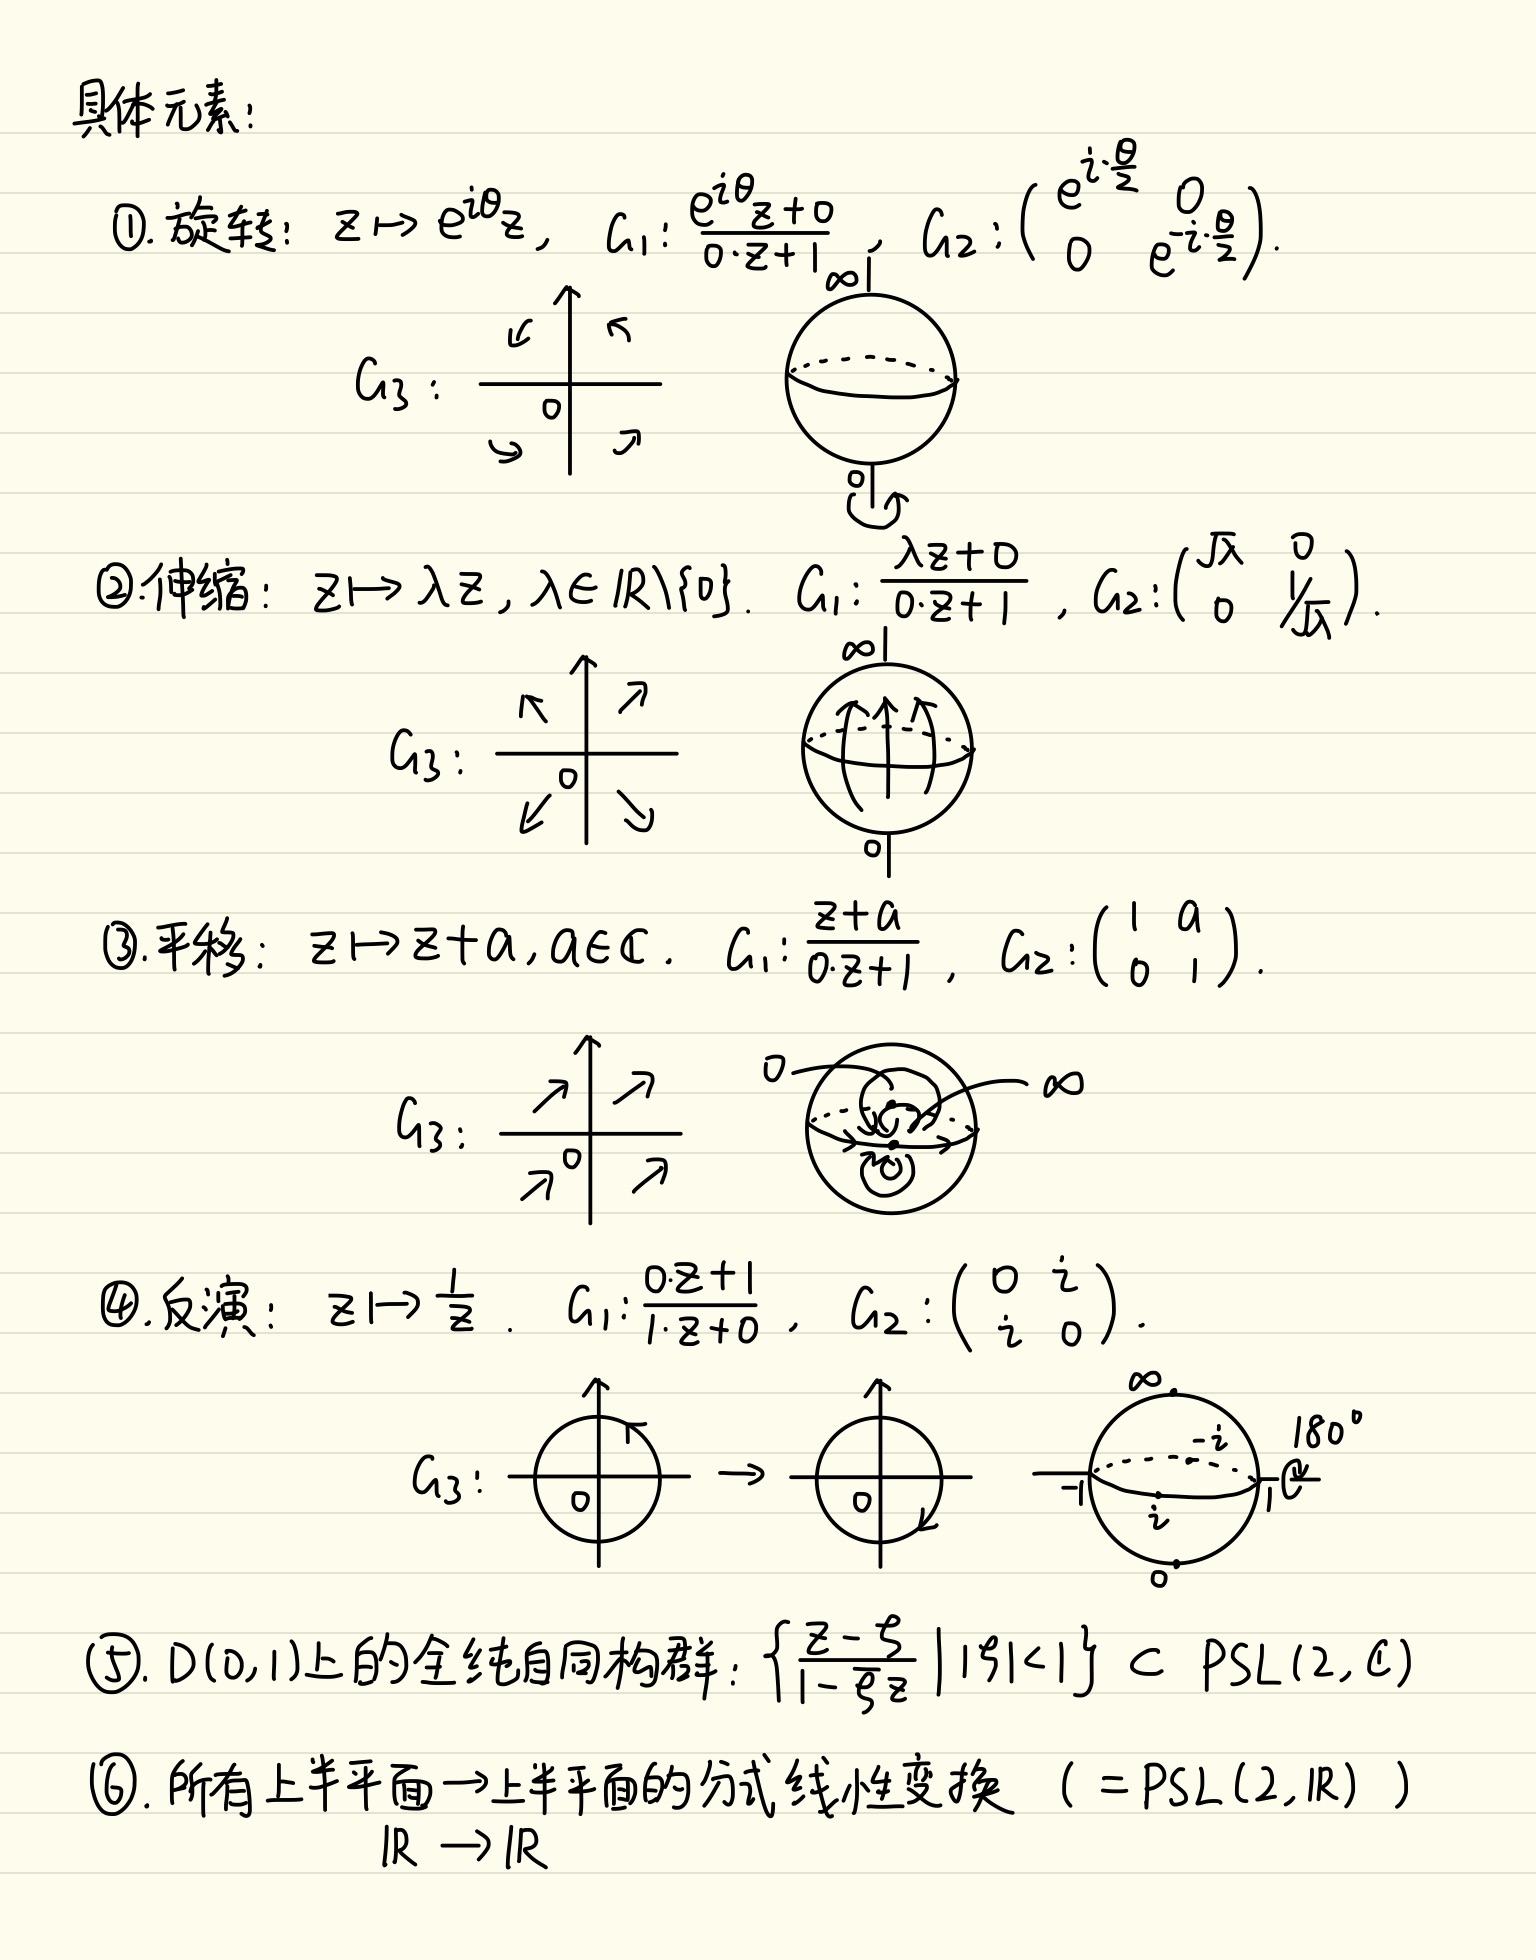 具体元素:
①. 旋转: z ↦ e^{iθ}z, G₁: (e^{iθ}z+0)/(0·z+1), G₂: (e^{i·θ/2} 0; 0 e^{-i·θ/2}).
G₃: 0 ∞ 0
②. 伸缩: z ↦ λz, λ∈ℝ\{0}. G₁: (λz+0)/(0·z+1), G₂: (√λ 0; 0 1/√λ).
G₃: 0 ∞ 0
③. 平移: z ↦ z+a, a∈ℂ. G₁: (z+a)/(0·z+1), G₂: (1 a; 0 1).
G₃: 0 0 ∞
④. 反演: z ↦ 1/z. G₁: (0·z+1)/(1·z+0), G₂: (0 i; i 0).
G₃: 0 → 0 ∞ -i -1 i 1 180° 0
⑤. D(0,1)上的全纯自同构群: {(z-ζ)/(1-ζ̄z) | |ζ|<1} ⊂ PSL(2,ℂ)
⑥. 所有上半平面→上半平面的分式线性变换 ( = PSL(2,ℝ) )
ℝ → ℝ